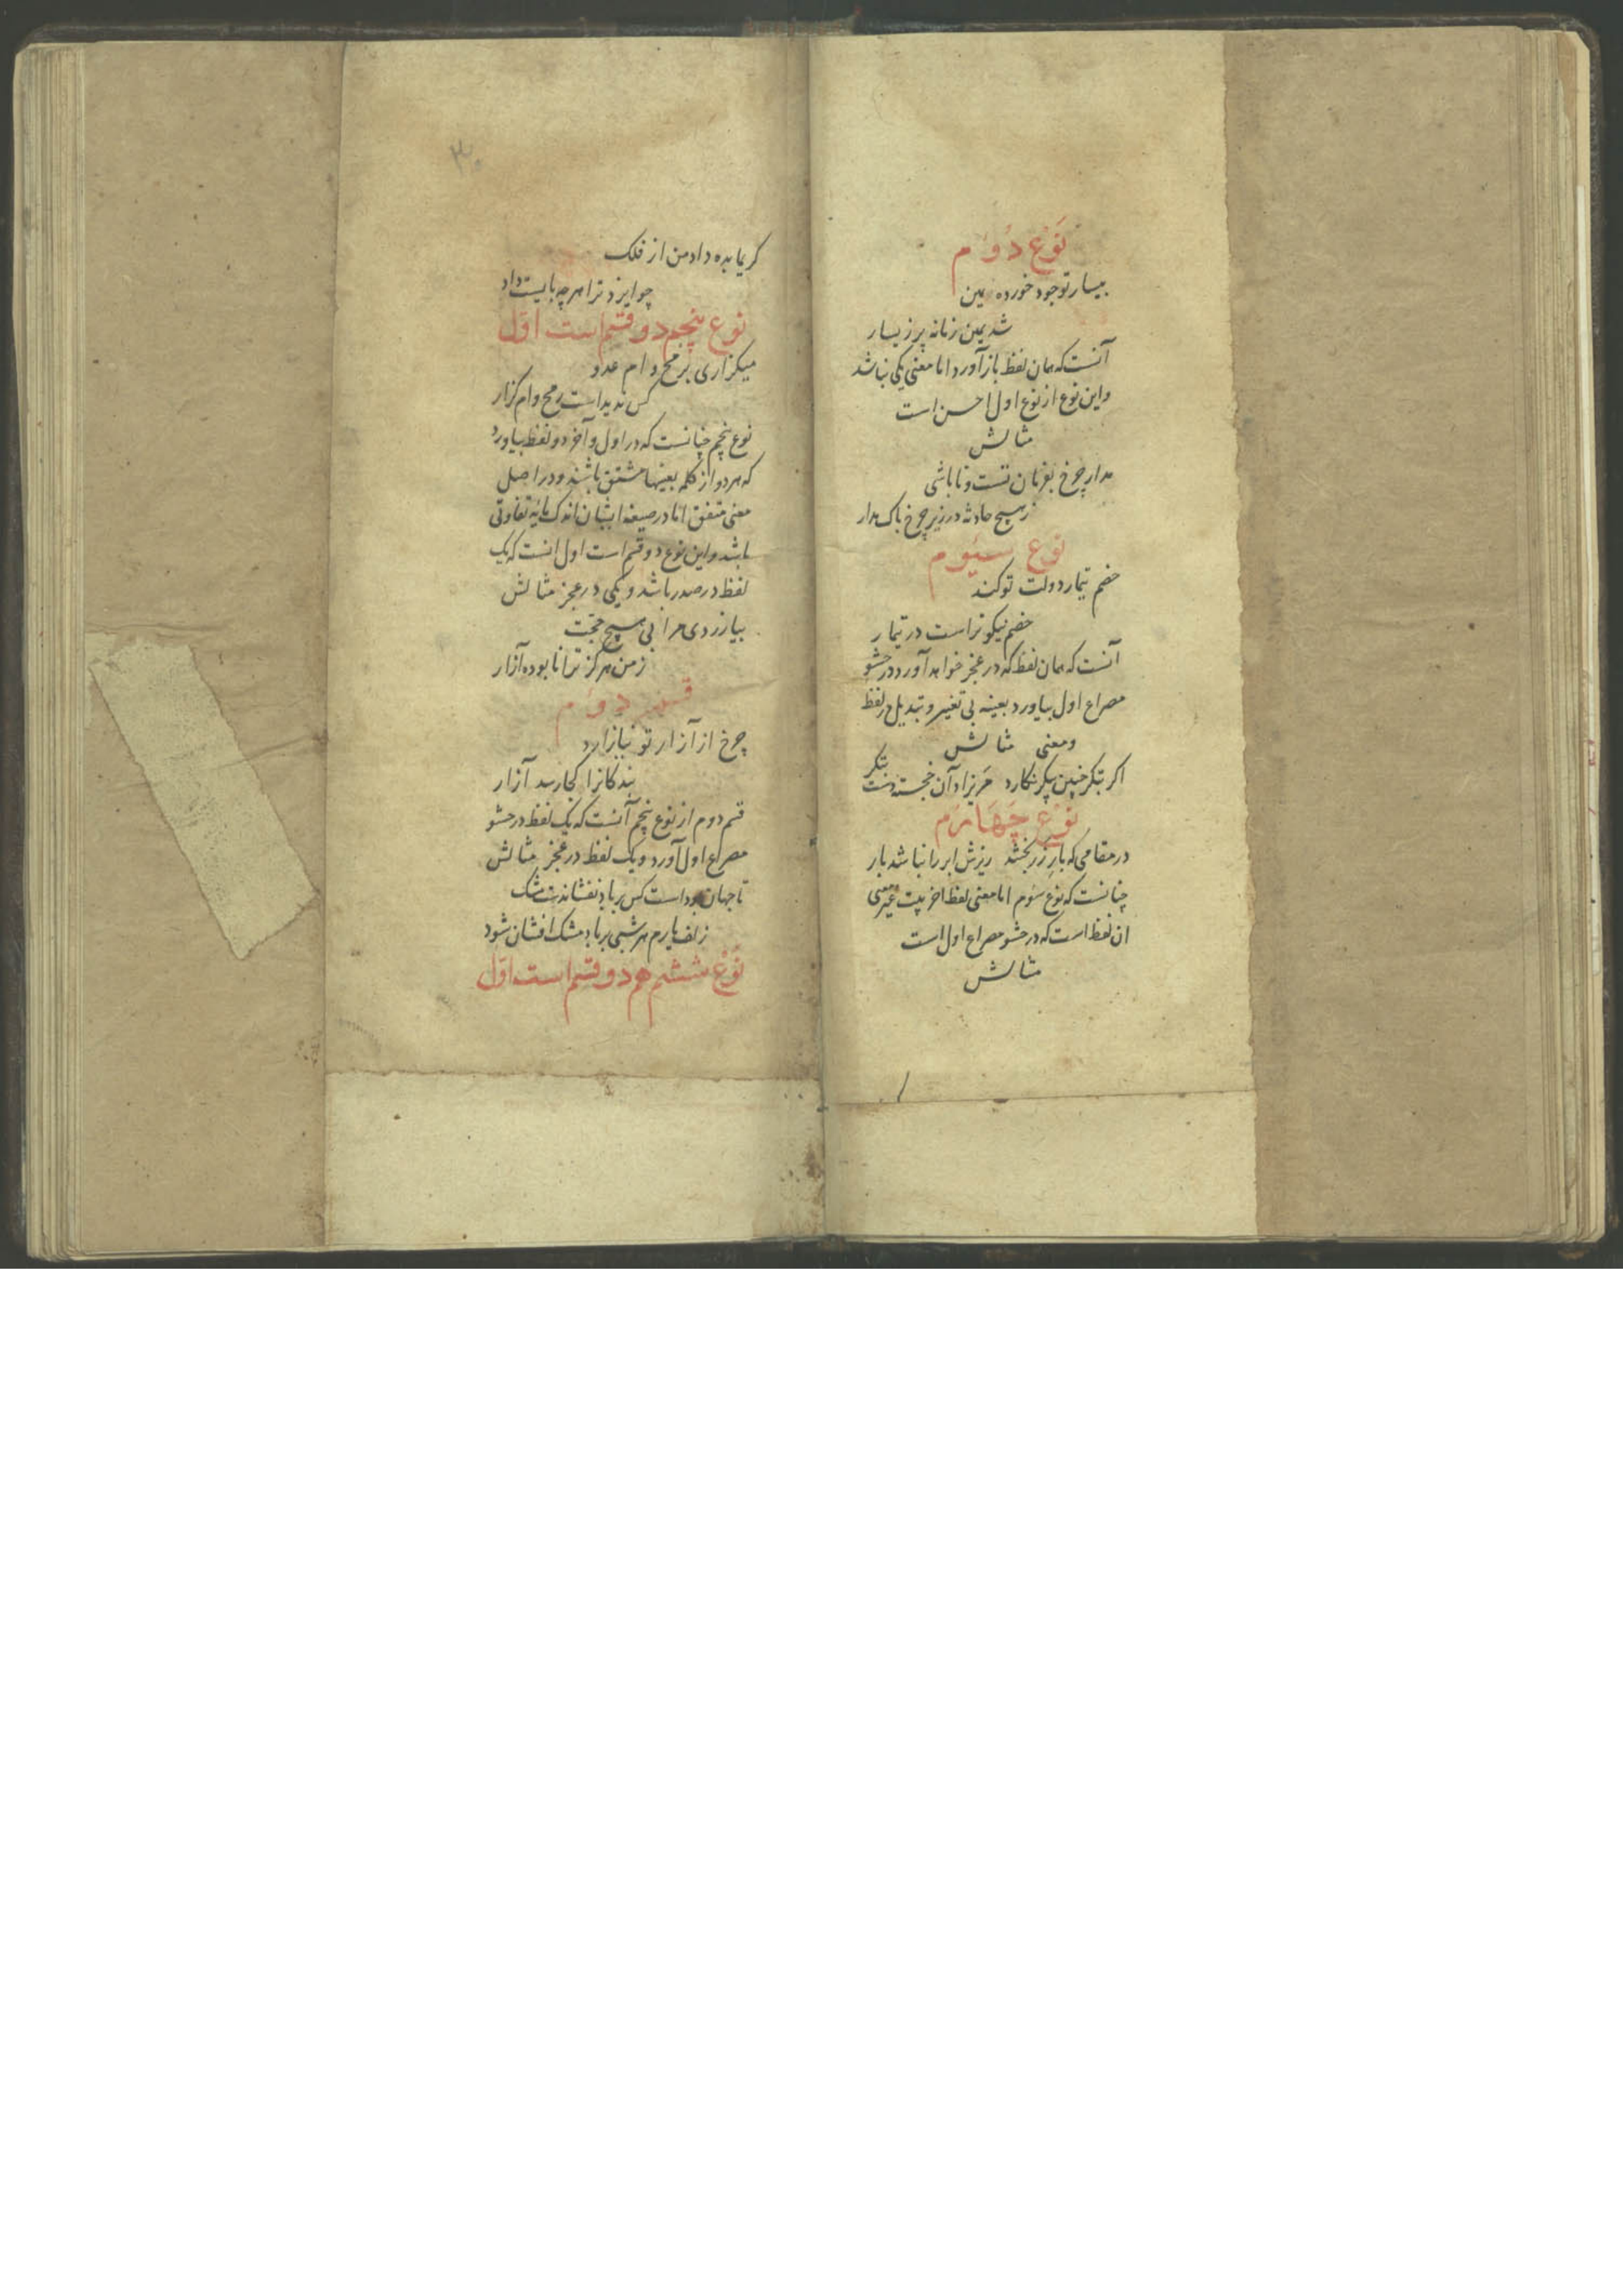 نوع دوم
بیسار تو جود خورده یمین
شد یمین زمانه پر ز یسار
آنست که همان لفظ باز آورد اما معنی یکی نباشد
و این نوع از نوع اول احسن است
مثالش
مدار چرخ بفرمان تست و تا باشی
ز هیچ حادثه در زیر چرخ باک مدار
نوع سیوم
خصم تیمار دولت تو کند
خصم نیکوتر است در تیمار
آنست که همان لفظ که در عجز خواهد آورد در حشو
مصراع اول بیاورد بعینه بی تغییر و تبدیل در لفظ
و معنی مثالش
اکر بتکر چنین پیکر نکارد مریزاد آن خجسته دست بتکر
نوع چهارم
در مقامی که بار زر بخشد ریزش ابر را نباشد بار
چنانست که نوع سوم اما معنی لفظ اخر بیت غیر معنی
ان لفظ است که در حشو مصراع اول است
مثالش
۳۰
کریما بده داد من از فلک
چو ایزد ترا هر چه بایست داد
نوع پنجم دو قسم است اول
میکزاری برمح وام عدو
کس ندیداست رمح وام کزار
نوع پنجم چنانست که در اول و آخر دو لفظ بیاورد
که هر دو از کلمه بعینها مشتق باشند و در اصل
معنی متفق اما در صیغه ایشان اندک مایه تفاوتی
باشد و این نوع دو قسم است اول انست که یک
لفظ در صدر باشد و یکی در عجز مثالش
بیازردی مرا بی هیچ حجت
ز من هرکز ترا نابوده آزار
قسم دوم
چرخ از آزار تو نیازارد
بندکانرا کجا رسد آزار
قسم دوم از نوع پنجم آنست که یک لفظ در حشو
مصراع اول آورد و یک لفظ در عجز مثالش
تا جهان بوداست کس بر باد نفشاندست مشک
زلف یارم هر شبی بر باد مشک افشان شود
نوع ششم هم دو قسم است اول